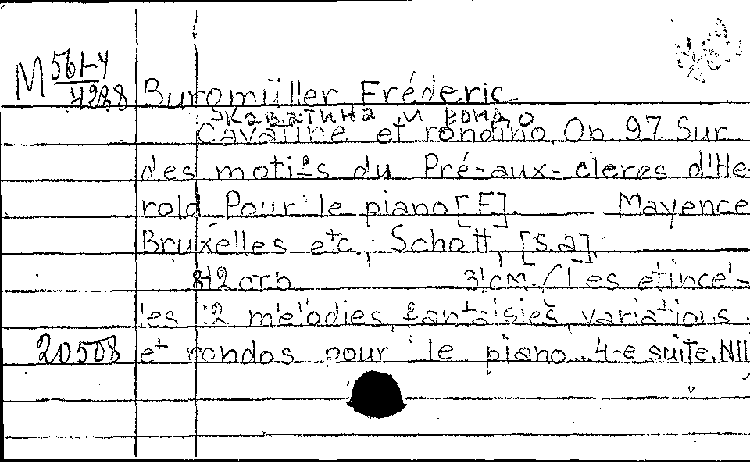 M 561-4
4288
Burgmüller Fréderic
Каватина и рондо
Cavatine et rondino, Op. 97 Sur
des motifs du Pré-aux-clercs d'He-
rold Pour le piano [F] Mayence
Bruxelles etc., Schott, [s.a].
12 стр. 31 см. / Les etincel-
les 12 melodies, fantaisies, variations
20508 et rondos pour le piano. 4-e suite. N11